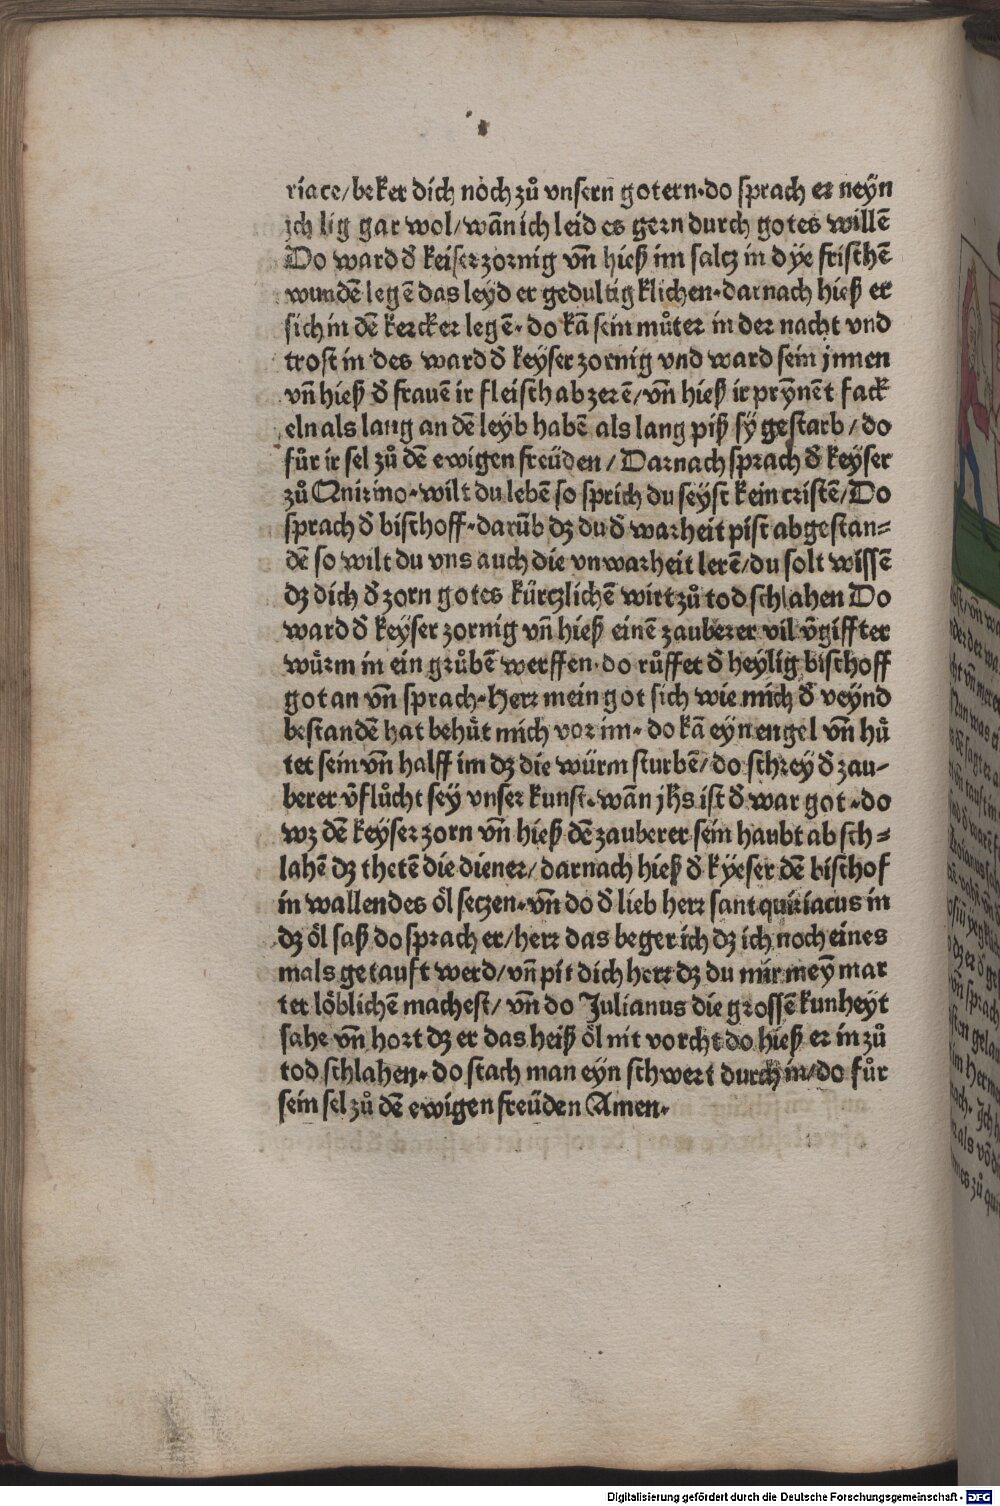 riace/beker dich noch zů vnsern gotern·do sprach er neÿn
ich lig gar wol/wañ ich leid es gern durch gotes willē
Do ward đ keiser zornig vñ hieß im saltz in dÿe frischē
wundē legē das leÿd er gedultigklichen·darnach hieß er
sich in dē kercker legē·do kā sein můter in der nacht vnd
trost in des ward đ keÿser zornig vnd ward sein jnnen
vñ hieß đ frauē ir fleisch ab zerē/vñ hieß ir prÿnēt fack
eln als lang an dē leÿb habē als lang piß sÿ gestarb/do
fůr ir sel zů dē ewigen freüden/Darnach sprach đ keÿser
zů Quirino·wilt du lebē so sprich du seÿst kein cristē/Do
sprach đ bischoff·darūb dz du đ warheit pist abgestan=
dē so wilt du vns auch die vnwarheit lerē/du solt wissē
dz dich đ zorn gotes kürtzlichē wirt zů tod schlahen Do
ward đ keÿser zornig vñ hieß einē zauberer vil v̄giffter
würm in ein grůbē werffen·do růffet đ heÿlig bischoff
got an vñ sprach·Herr mein got sich wie mich đ veÿnd
bestandē hat behüt mich vor im·do kā eÿn engel vñ hü
tet sein vñ halff im dz die würm sturbē/do schreÿ đ zau-
berer v̄flůcht seÿ vnser kunst·wañ jhs ist đ war got·do
wz dē keÿser zorn vñ hieß dē zauberer sein haubt ab sch=
lahē dz thetē die diener/darnach hieß đ kÿeser dē bischof
in wallendes öl setzen·vñ do đ lieb herr sant quiriacus in
dz öl saß do sprach er/herr das beger ich dz ich noch eines
mals getauft werd/vñ pit dich herr dz du mir meÿ mar
ter löblichē machest/vñ do Julianus die grossē kunheÿt
sahe vñ hort dz er das heiß öl nit vorcht do hieß er in zů
tod schlahen·do stach man eÿn schwert durch in/do fůr
sein sel zů dē ewigen freüden Amen·
Digitalisierung gefördert durch die Deutsche Forschungsgemeinschaft - DFG